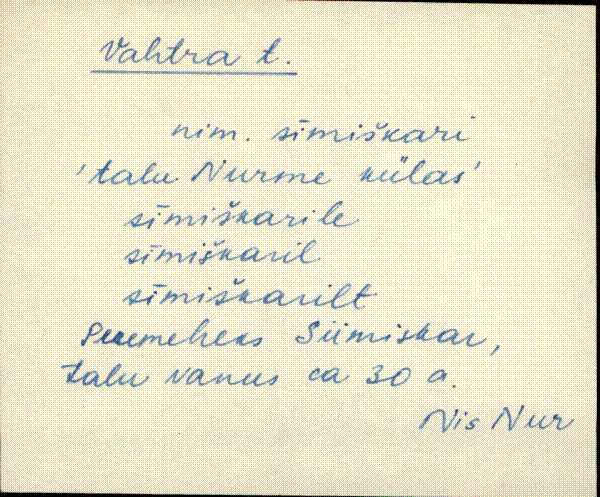 Vahtra t.
nim. sīmiškari
'talu Nurme külas'
sīmiškarile
sīmiškaril
sīmiškarilt
Peremeheks Siimiskar,
talu vanus ca 30 a.
Nis Nur